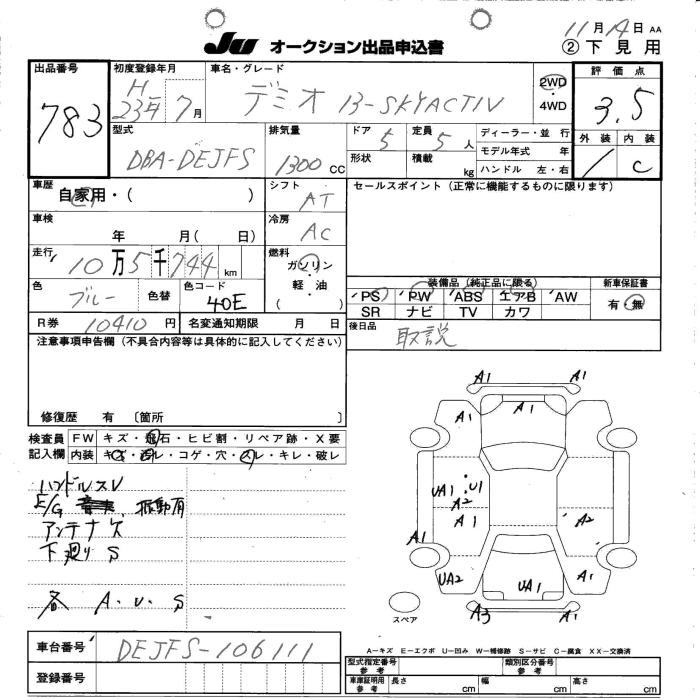 11月14日 AA
JU オークション出品申込書
②下見用
出品番号
783
初度登録年月
H
23年7月
車名・グレード
デミオ 13-SKYACTIV
2WD
・
4WD
評価点
3.5
外装 内装
/ C
型式
DBA-DEJFS
排気量
1300 cc
ドア 5
定員 5人
形状
積載 kg
ディーラー・並行
モデル年式 年
ハンドル 左・右
車歴
自家用・( )
シフト
AT
セールスポイント(正常に機能するものに限ります)
車検
年 月( 日)
冷房
AC
走行
10万5千744km
燃料
ガソリン
・
軽・油
( )
色
ブルー
色替
色コード
40E
装備品(純正品に限る)
PS PW ABS エアB AW
SR ナビ TV カワ
新車保証書
有・無
R券 10410円
名変通知期限 月 日
後日品
取説
注意事項申告欄(不具合内容等は具体的に記入してください)
修復歴 有 〔箇所 〕
検査員
記入欄
FW キズ・飛石・ヒビ割・リペア跡・X要
内装 キズ・汚レ・コゲ・穴・スレ・キレ・破レ
ハンドルスレ
E/G 振動有
アンテナ欠
下廻り S
各 A・U・S
A1 A1
A1 A1
UA1 U1
A2
A1 A2
A1
UA2 UA1 A1
A3 A1
スペア
車台番号
DEJFS-106111
登録番号
A-キズ E-エクボ U-凹み W-補修跡 S-サビ C-腐食 XX-交換済
型式指定番号
参考
類別区分番号
参考
車庫証明用
参考
長さ cm 幅 cm 高さ cm